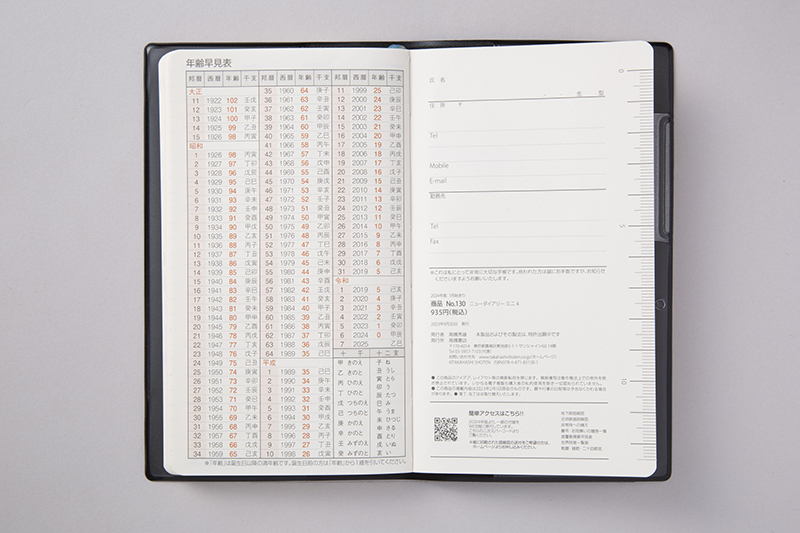 年齢早見表
邦暦 西暦 年齢 干支
大正
11 1922 102 壬戌
12 1923 101 癸亥
13 1924 100 甲子
14 1925 99 乙丑
15 1926 98 丙寅
昭和
1 1926 98 丙寅
2 1927 97 丁卯
3 1928 96 戊辰
4 1929 95 己巳
5 1930 94 庚午
6 1931 93 辛未
7 1932 92 壬申
8 1933 91 癸酉
9 1934 90 甲戌
10 1935 89 乙亥
11 1936 88 丙子
12 1937 87 丁丑
13 1938 86 戊寅
14 1939 85 己卯
15 1940 84 庚辰
16 1941 83 辛巳
17 1942 82 壬午
18 1943 81 癸未
19 1944 80 甲申
20 1945 79 乙酉
21 1946 78 丙戌
22 1947 77 丁亥
23 1948 76 戊子
24 1949 75 己丑
25 1950 74 庚寅
26 1951 73 辛卯
27 1952 72 壬辰
28 1953 71 癸巳
29 1954 70 甲午
30 1955 69 乙未
31 1956 68 丙申
32 1957 67 丁酉
33 1958 66 戊戌
34 1959 65 己亥
邦暦 西暦 年齢 干支
35 1960 64 庚子
36 1961 63 辛丑
37 1962 62 壬寅
38 1963 61 癸卯
39 1964 60 甲辰
40 1965 59 乙巳
41 1966 58 丙午
42 1967 57 丁未
43 1968 56 戊申
44 1969 55 己酉
45 1970 54 庚戌
46 1971 53 辛亥
47 1972 52 壬子
48 1973 51 癸丑
49 1974 50 甲寅
50 1975 49 乙卯
51 1976 48 丙辰
52 1977 47 丁巳
53 1978 46 戊午
54 1979 45 己未
55 1980 44 庚申
56 1981 43 辛酉
57 1982 42 壬戌
58 1983 41 癸亥
59 1984 40 甲子
60 1985 39 乙丑
61 1986 38 丙寅
62 1987 37 丁卯
63 1988 36 戊辰
64 1989 35 己巳
平成
1 1989 35 己巳
2 1990 34 庚午
3 1991 33 辛未
4 1992 32 壬申
5 1993 31 癸酉
6 1994 30 甲戌
7 1995 29 乙亥
8 1996 28 丙子
9 1997 27 丁丑
10 1998 26 戊寅
邦暦 西暦 年齢 干支
11 1999 25 己卯
12 2000 24 庚辰
13 2001 23 辛巳
14 2002 22 壬午
15 2003 21 癸未
16 2004 20 甲申
17 2005 19 乙酉
18 2006 18 丙戌
19 2007 17 丁亥
20 2008 16 戊子
21 2009 15 己丑
22 2010 14 庚寅
23 2011 13 辛卯
24 2012 12 壬辰
25 2013 11 癸巳
26 2014 10 甲午
27 2015 9 乙未
28 2016 8 丙申
29 2017 7 丁酉
30 2018 6 戊戌
31 2019 5 己亥
令和
1 2019 5 己亥
2 2020 4 庚子
3 2021 3 辛丑
4 2022 2 壬寅
5 2023 1 癸卯
6 2024 0 甲辰
7 2025 乙巳
十干 十二支
甲 きのえ 子 ね
乙 きのと 丑 うし
丙 ひのえ 寅 とら
丁 ひのと 卯 う
戊 つちのえ 辰 たつ
己 つちのと 巳 み
庚 かのえ 午 うま
辛 かのと 未 ひつじ
壬 みずのえ 申 さる
癸 みずのと 酉 とり
戌 いぬ
亥 い
※「年齢」は誕生日以降の満年齢です。誕生日前の方は「年齢」から1歳を引いてください。
氏 名
住 所 〒
Tel
Mobile
E-mail
勤務先
Tel
Fax
0
5
10
※これは私にとって非常に大切な手帳です。拾われた方は誠にお手数ですが、お知らせ
くださいますようお願いいたします。
2024年版 1月始まり
商品 No.130 ニューダイアリー ミニ 4
935円(税込)
発行所 高橋書店
簡単アクセスはこちら!!